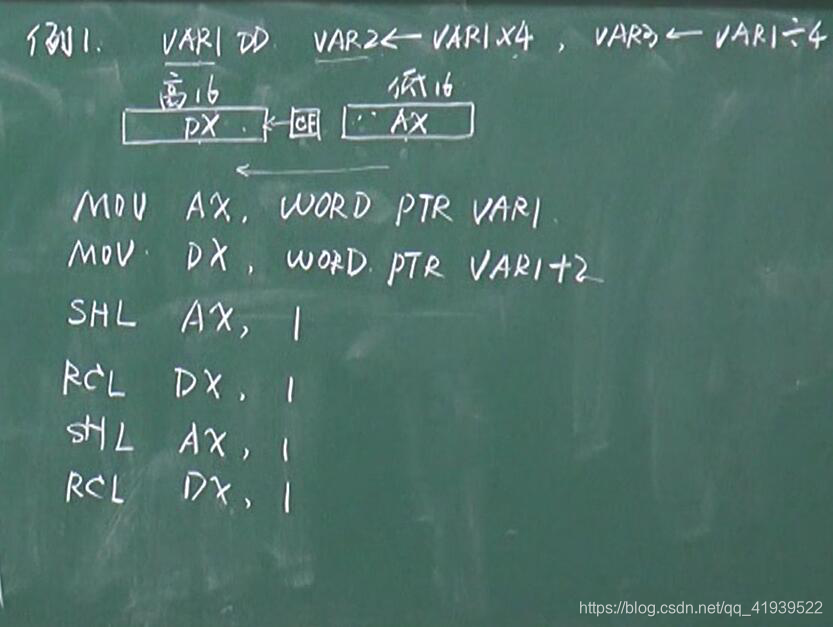 例1. VAR1 DD VAR2← VAR1×4 , VAR3← VAR1÷4
高16 低16
DX ← CF AX
←
MOV AX, WORD PTR VAR1.
MOV DX, WORD PTR VAR1+2
SHL AX, 1
RCL DX, 1
SHL AX, 1
RCL DX, 1
https://blog.csdn.net/qq_41939522